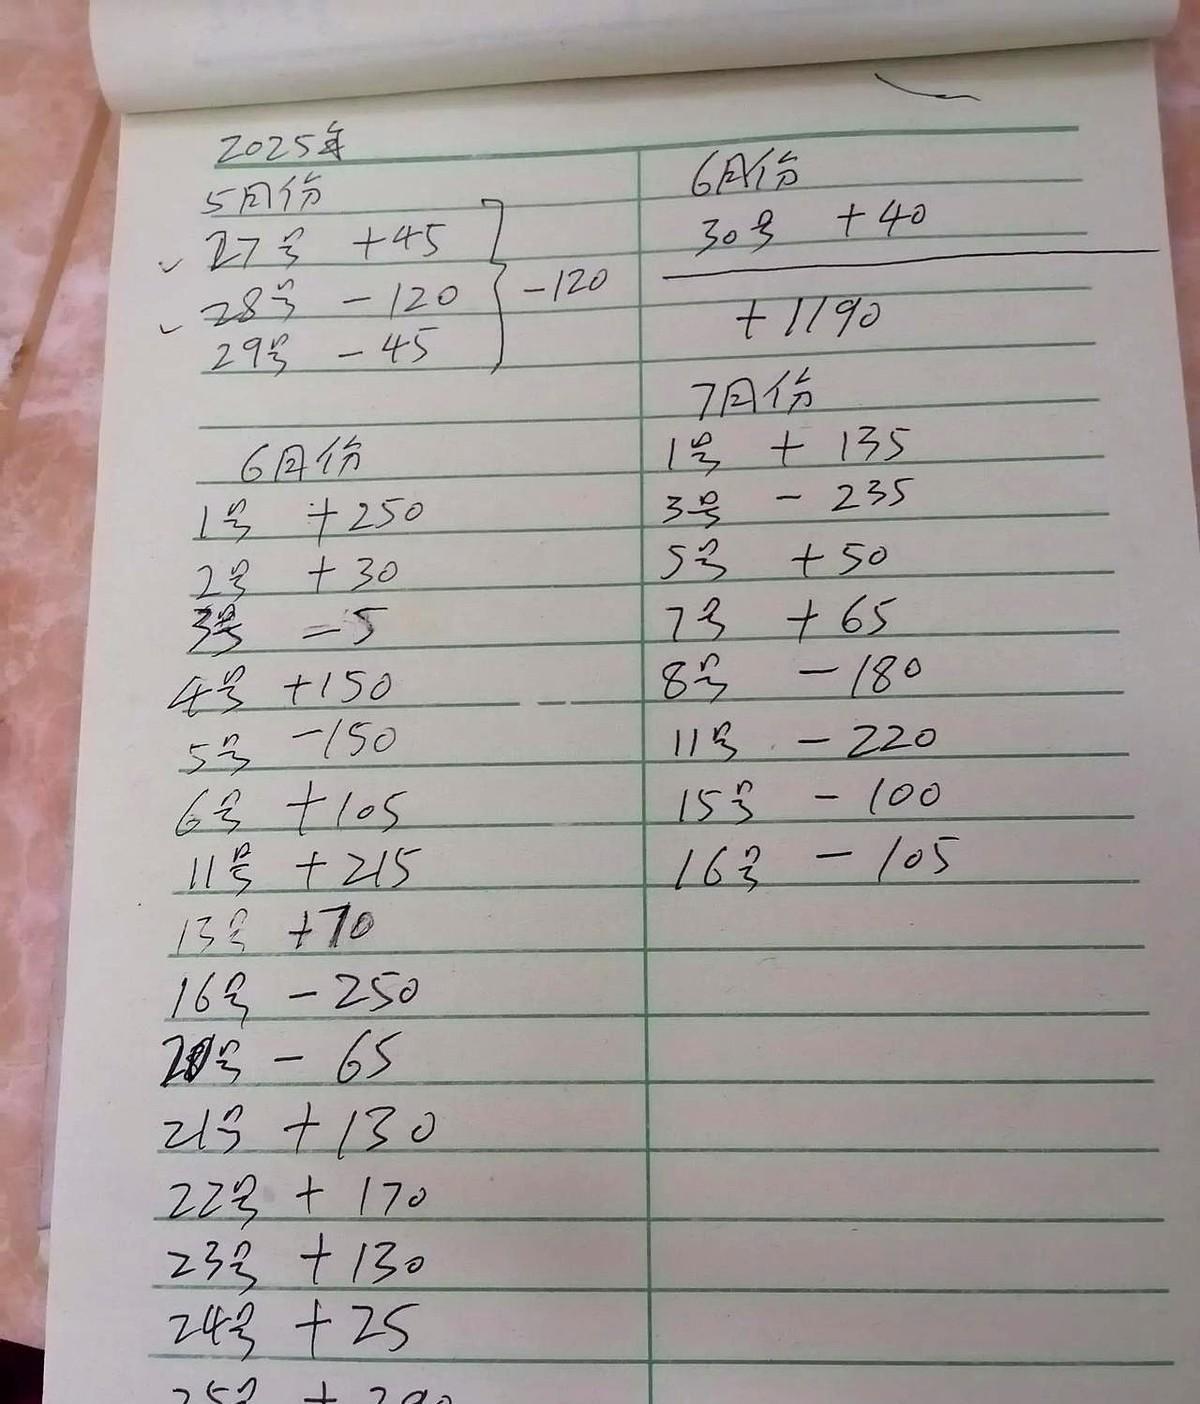 2025年
5月份
27号 +45
28号 -120
29号 -45
-120
6月份
1号 +250
2号 +30
3号 -5
4号 +150
5号 -150
6号 +105
11号 +215
13号 +70
16号 -250
20号 - 65
21号 +130
22号 + 170
23号 +130
24号 +25
25号 + 290
6月份
30号 +40
+1190
7月份
1号 + 135
3号 - 235
5号 +50
7号 +65
8号 -180
11号 -220
15号 -100
16号 -105